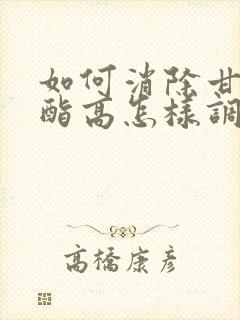 如何消除甘
酯高怎樣調
高橋康彦